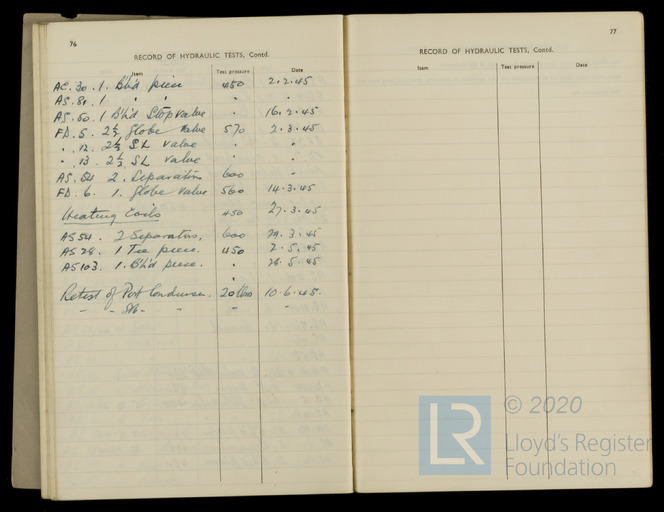 76
RECORD OF HYDRAULIC TESTS, Contd.
Item Test pressure Date
AS. 30. 1. Bh'd piece 450 2.2.45
AS. 81. 1 " " " "
AS. 50. 1 Bh'd Stop valve " 16.2.45
FD. 5. 2½ Globe valve 570 2.3.45
" 12. 2½ SL valve " "
" 13. 2½ SL valve " "
AS. 64 2. Separators 600 "
FD. 6. 1. Globe valve 560 14.3.45
Heating Coils 450 27.3.45
AS 54. 2 Separators, 600 29.3.45
AS 28. 1 Tee piece. 450 2.5.45
AS 103. 1. Bh'd piece. " 28.5.45
Retest of Port Condenser. 20 10.6.45.
" " "
77
RECORD OF HYDRAULIC TESTS, Contd.
Item Test pressure Date
LR © 2020
Lloyd's Register
Foundation